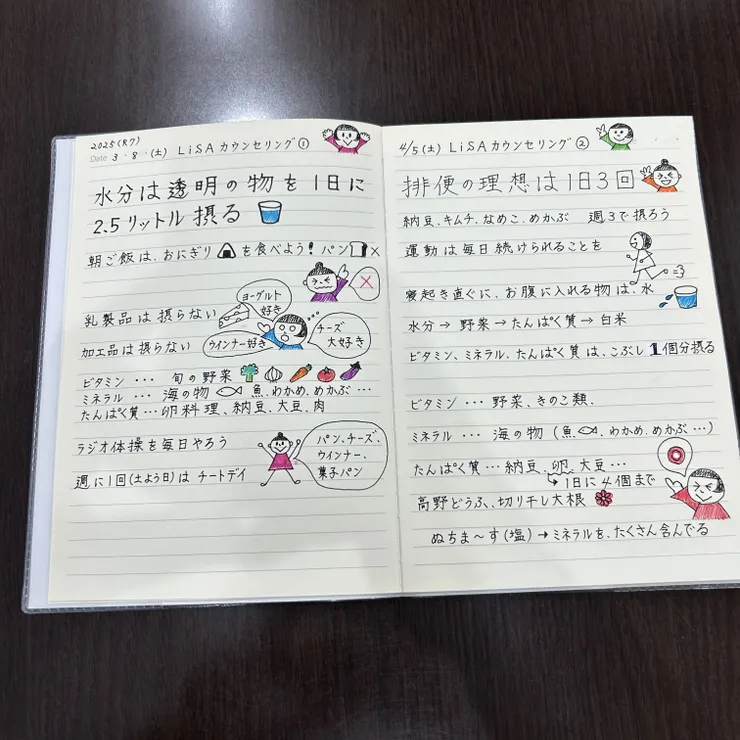 2025(R7)
Date 3・8・(土) LiSAカウンセリング①
水分は透明の物を1日に
2.5リットル摂る
朝ご飯は、おにぎりを食べよう! パン×
×
乳製品は摂らない
ヨーグルト
好き
加工品は摂らない
ウインナー好き
チーズ
大好き
ビタミン… 旬の野菜
ミネラル… 海の物 魚.わかめ.めかぶ…
たんぱく質…卵料理、納豆、大豆、肉
ラジオ体操を毎日やろう
週に1回(土よう日)は チートデイ
パン、チーズ、
ウインナー、
菓子パン
4/5(土) LiSAカウンセリング②
排便の理想は1日3回
納豆、キムチ、なめこ、めかぶ 週3で摂ろう
運動は毎日続けられることを
寝起き直ぐに、お腹に入れる物は、水
水分→野菜→たんぱく質→白米
ビタミン、ミネラル、たんぱく質は、こぶし1個分摂る
ビタミン… 野菜、きのこ類.
ミネラル… 海の物(魚.わかめ、めかぶ…)
たんぱく質…納豆、卵、大豆…
↳1日に4個まで
高野どうふ、切り干し大根
ぬちま〜す(塩)→ミネラルを、たくさん含んでる